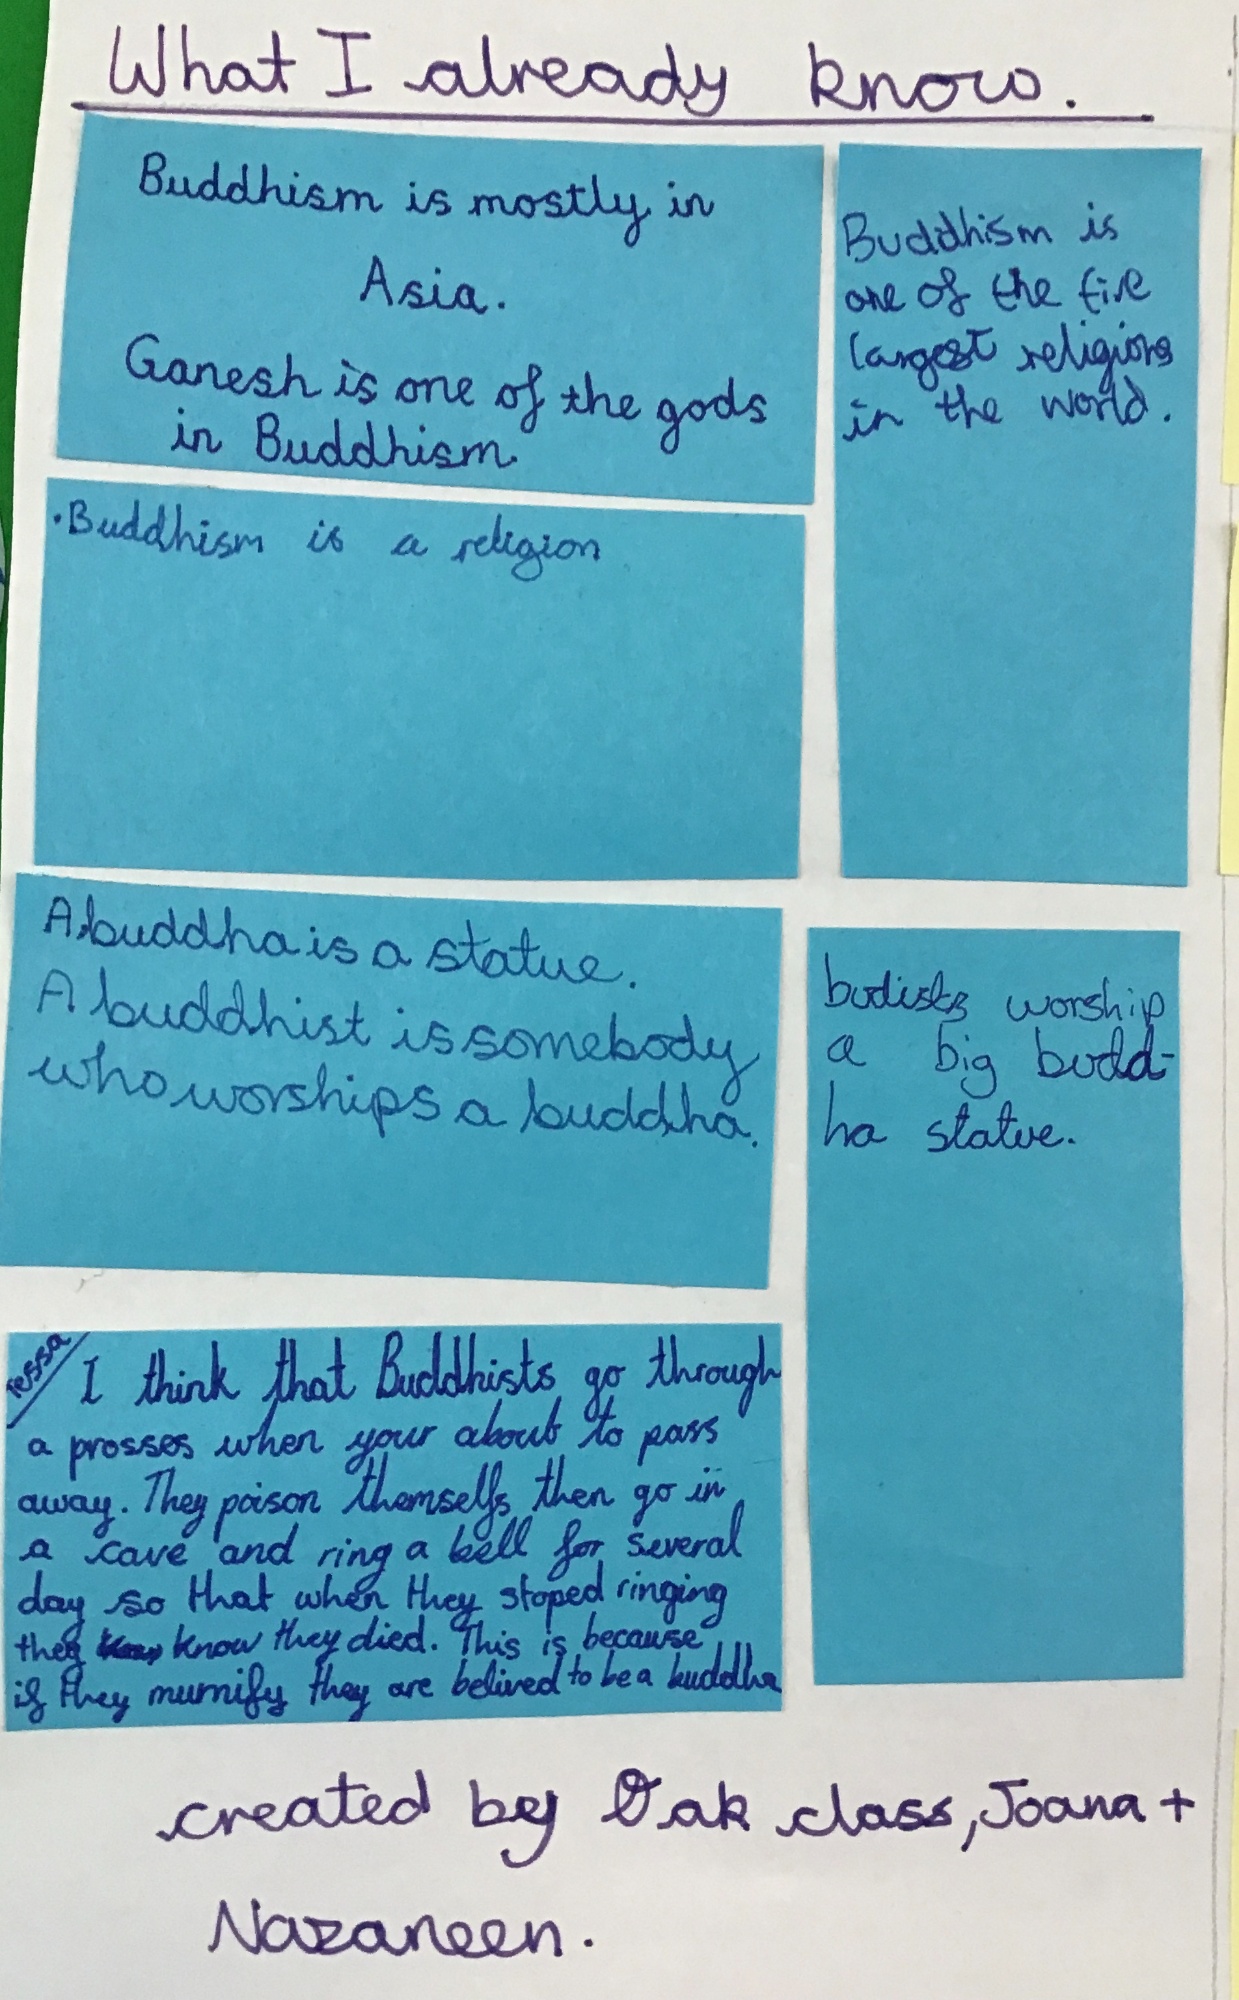 What I already know.
Buddhism is mostly in
Asia.
Ganesh is one of the gods
in Buddhism.
Buddhism is
one of the five
largest religions
in the world.
·Buddhism is a religion
A buddha is a statue.
A buddhist is somebody
who worships a buddha.
budists worship
a big budd-
ha statue.
Tessa
I think that Buddhists go through
a prosses when your about to pass
away. They poison themselfs then go in
a cave and ring a bell for several
day so that when they stoped ringing
they know they died. This is because
if they mumify they are belived to be a buddha
created by Oak class, Joana +
Nazaneen.